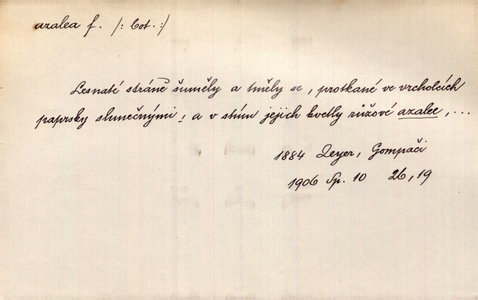 azalea f. /: bot. :/
Lesnaté stráně šuměly a tměly se, protkané ve vrcholcích
paprsky slunečnými; a v stínu jejich kvetly růžové azalee, ...
1884 Zeyer, Gompači
1906 Sp. 10 26,19